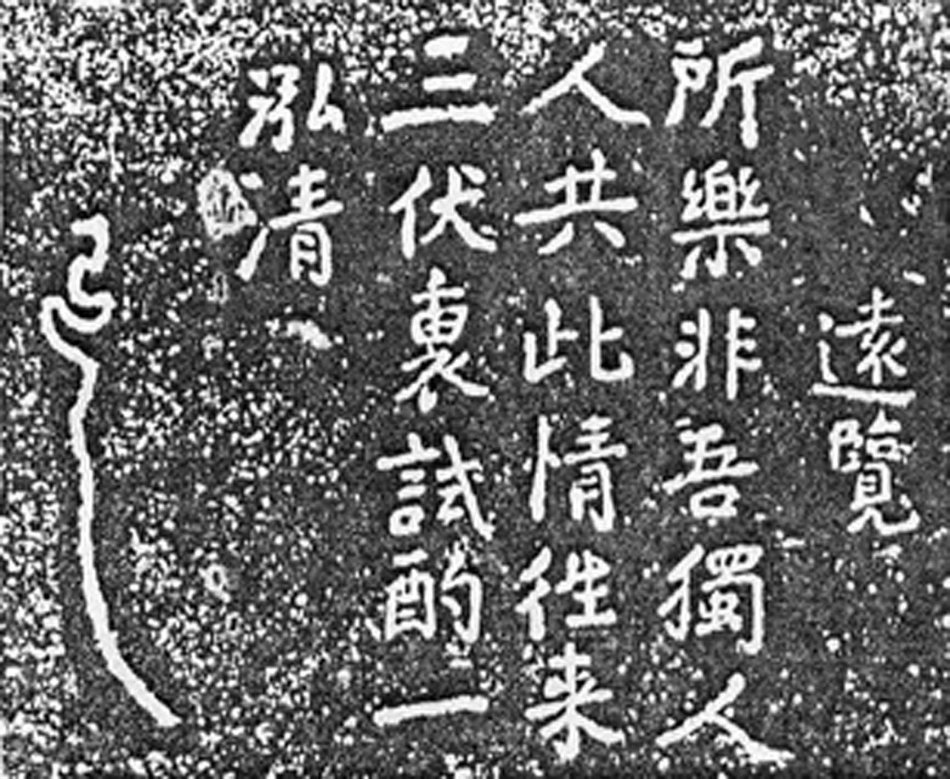 遠覽
所樂非吾獨人
人共此情徃来
三伏裏試酌一
泓清